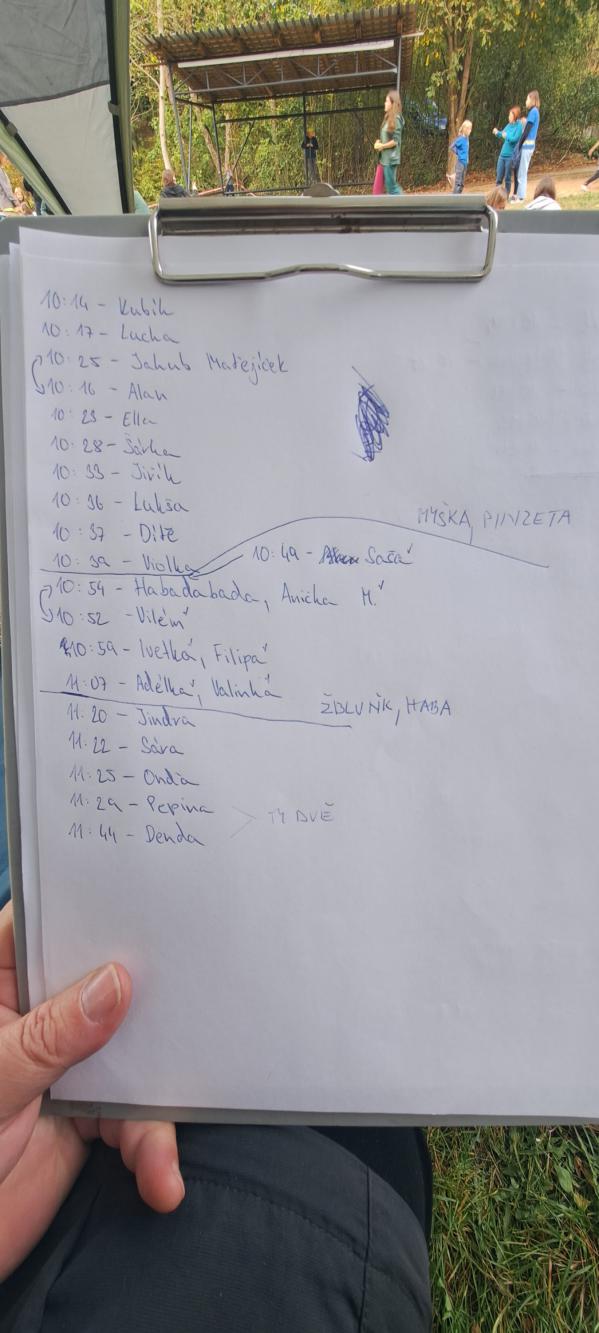 10:14 - Kubík
10:17 - Lucha
10:25 - Jakub Matějíček
10:16 - Alan
10:23 - Ella
10:28 - Šárka
10:33 - Jiřík
10:36 - Lukša
10:37 - Dítě
MYŠKA, PINZETA
10:39 - Violka
10:49 - Saša
10:54 - Habadabada, Anička M.
10:52 - Vilém
10:59 - Ivetka, Filipa
11:07 - Adélka, Valinka
ŽBLUŇK, HABA
11:20 - Jindra
11:22 - Sára
11:25 - Ondra
11:29 - Pepina
TY DVĚ
11:44 - Denda